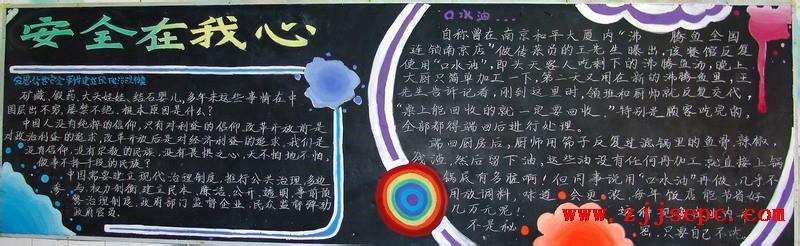 安全在我心
反思公共安全事件建立民化治政体
矿藏、假药、大头娃娃、结石婴儿,多年来这些事情在中
国层出不穷,屡禁不绝,根本原因是什么?
中国人没有纯粹的信仰,只有对利益的信仰,改革开放前是
对政治利益的追求,改革开放后是对经济利益的追求,我们是
没有信仰,没有宗教的民族,没有畏惧之心,天不怕地不怕,
做事不择手段的民族?
中国需要建立现代治理制度,推行公共治理,多边
参与,权力制衡,建立民本、廉洁、公开、透明、事前预
警治理制度,政府部门监督企业,民众监督弹劾
政府官员。
口水油...
自称曾在南京和平大厦内“沸 腾鱼全国
连锁南京店”做传菜员的王先生曝出,该餐馆反复
使用“口水油”,即头天客人吃剩下的沸腾鱼汤,晚上
大厨只简单加工一下,第二天又用在新的沸腾鱼里,王
先生告诉记者,刚到这里时,领班和厨师就反复交代,
“桌上能回收的就一定要回收。”特别是顾客吃完的,
全部都得端回后进行处理。
端回厨房后,厨师用筛子反复过滤锅里的鱼骨、辣椒、
残渣,然后留下油,这些油没有任何再加工就直接上锅
锅底有多脏啊!但同事说用“口水油”再做,几乎不
用放调料,味道 会更 浓,每年饭店能节省好
几万元呢!
不是秘
密,只要自己不吃
www.zjjsepc.com